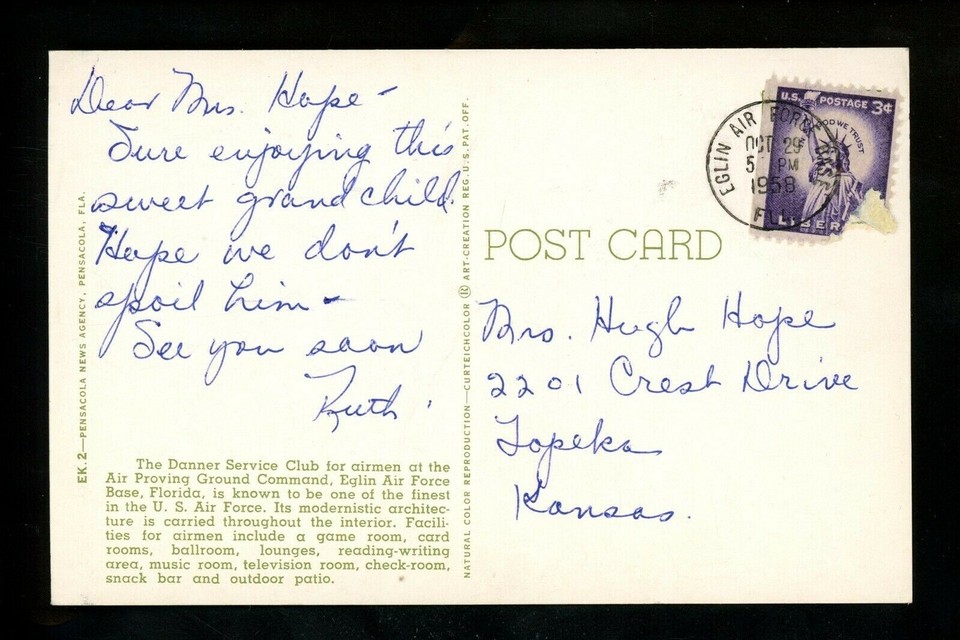 Dear Mrs. Hope -
Sure enjoying this
sweet grand child.
Hope we don't
spoil him -
See you soon
Ruth.
The Danner Service Club for airmen at the
Air Proving Ground Command, Eglin Air Force
Base, Florida, is known to be one of the finest
in the U. S. Air Force. Its modernistic architec-
ture is carried throughout the interior. Facili-
ties for airmen include a game room, card
rooms, ballroom, lounges, reading-writing
area, music room, television room, check-room,
snack bar and outdoor patio.
EK. 2—PENSACOLA NEWS AGENCY, PENSACOLA, FLA.
NATURAL COLOR REPRODUCTION—CURTEICHCOLOR ® ART-CREATION REG. U.S. PAT. OFF.
POST CARD
U.S. POSTAGE 3¢
GOD WE TRUST
LIBER
EGLIN AIR FORCE
OCT 29
5 PM
1958
FLA
Mrs. Hugh Hope
2201 Crest Drive
Topeka
Kansas.